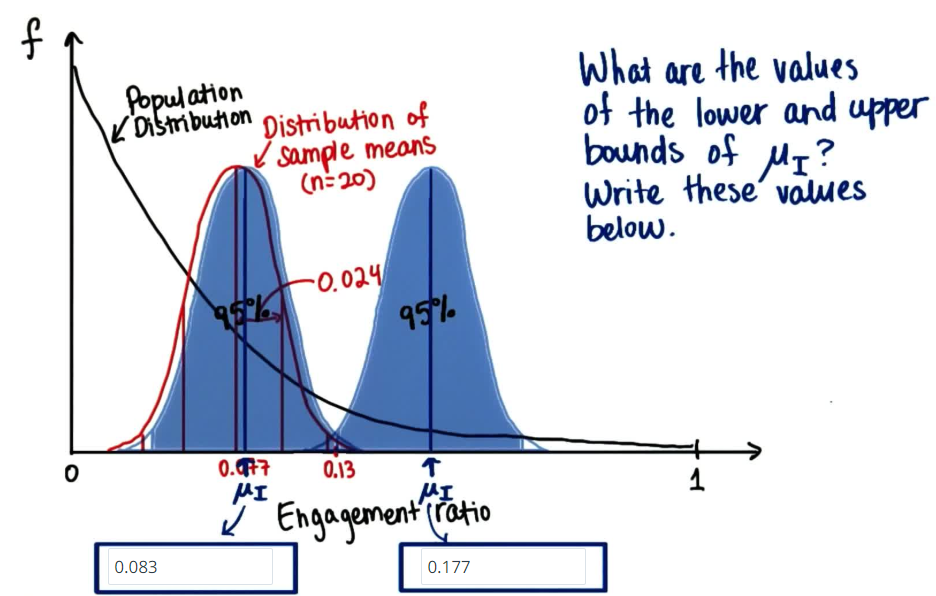 f
Population
Distribution
Distribution of
sample means
(n=20)
0.024
95%
95%
What are the values
of the lower and upper
bounds of μI?
Write these values
below.
0
0.077
0.13
1
μI
μI
Engagement ratio
0.083
0.177